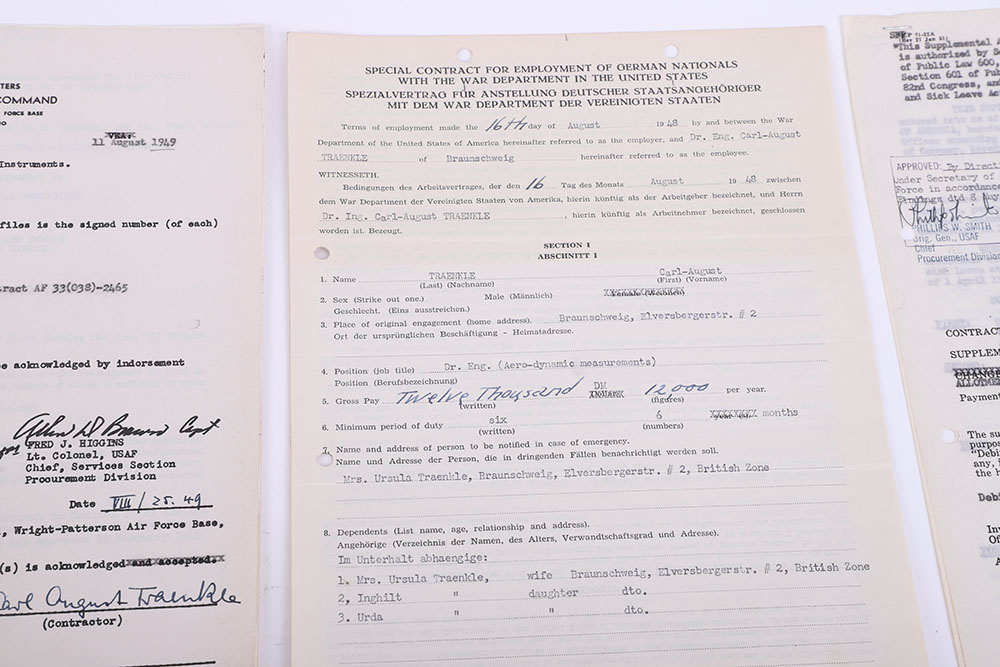 TERS
COMMAND
FORCE BASE
O
11 August 1949
Instruments.
files is the signed number (of each)
ract AF 33(038)-2465
e acknowledged by indorsement
FRED J. HIGGINS
Lt. Colonel, USAF
Chief, Services Section
Procurement Division
Date VIII/25.49
, Wright-Patterson Air Force Base,
(s) is acknowledged and accepted.
Carl August Traenkle
(Contractor)
SPECIAL CONTRACT FOR EMPLOYMENT OF GERMAN NATIONALS
WITH THE WAR DEPARTMENT IN THE UNITED STATES
SPEZIALVERTRAG FÜR ANSTELLUNG DEUTSCHER STAATSANGEHÖRIGER
MIT DEM WAR DEPARTMENT DER VEREINIGTEN STAATEN
Terms of employment made the 16th day of August 1948 by and between the War
Department of the United States of America hereinafter referred to as the employer, and Dr. Eng. Carl-August
TRAENKLE of Braunschweig hereinafter referred to as the employee.
WITNESSETH.
Bedingungen des Arbeitsvertrages, der den 16 Tag des Monats August 1948 zwischen
dem War Department der Vereinigten Staaten von Amerika, hierin künftig als der Arbeitgeber bezeichnet, und Herrn
Dr. Ing. Carl-August TRAENKLE, hierin künftig als Arbeitnehmer bezeichnet, geschlossen
worden ist. Bezeugt.
SECTION I
ABSCHNITT I
1. Name TRAENKLE Carl-August
(Last) (Nachname) (First) (Vorname)
2. Sex (Strike out one.) Male (Männlich) Female (Weiblich)
Geschlecht. (Eins ausstreichen.)
3. Place of original engagement (home address). Braunschweig, Elversbergerstr. # 2
Ort der ursprünglichen Beschäftigung - Heimatadresse.
4. Position (job title) Dr. Eng. (Aero-dynamic measurements)
Position (Berufsbezeichnung)
5. Gross Pay Twelve Thousand DM 12,000 per year.
(written) (figures)
6. Minimum period of duty six 6 months
(written) (numbers)
7. Name and address of person to be notified in case of emergency.
Name und Adresse der Person, die in dringenden Fällen benachrichtigt werden soll.
Mrs. Ursula Traenkle, Braunschweig, Elversbergerstr. # 2, British Zone
8. Dependents (List name, age, relationship and address).
Angehörige (Verzeichnis der Namen, des Alters, Verwandtschaftsgrad und Adresse).
Im Unterhalt abhaengige:
1. Mrs. Ursula Traenkle, wife Braunschweig, Elversbergerstr. # 2, British Zone
2, Inghilt " daughter dto.
3. Urda " " dto.
71-21A
This Supplemental A
is authorized by Se
of Public Law 600,
Section 601 of Pub
82nd Congress, and
and Sick Leave Act
APPROVED: By Directi
Under Secretary of
Force in accordance
Findings dtd 8 May
PHILLIPS W. SMITH
Brig. Gen., USAF
Chief
Procurement Division
CONTRAC
SUPPLEM
CHANGE
ALLOTME
Payment
The su
purpos
"Debi
any, i
the h
Debi
In
Of
A